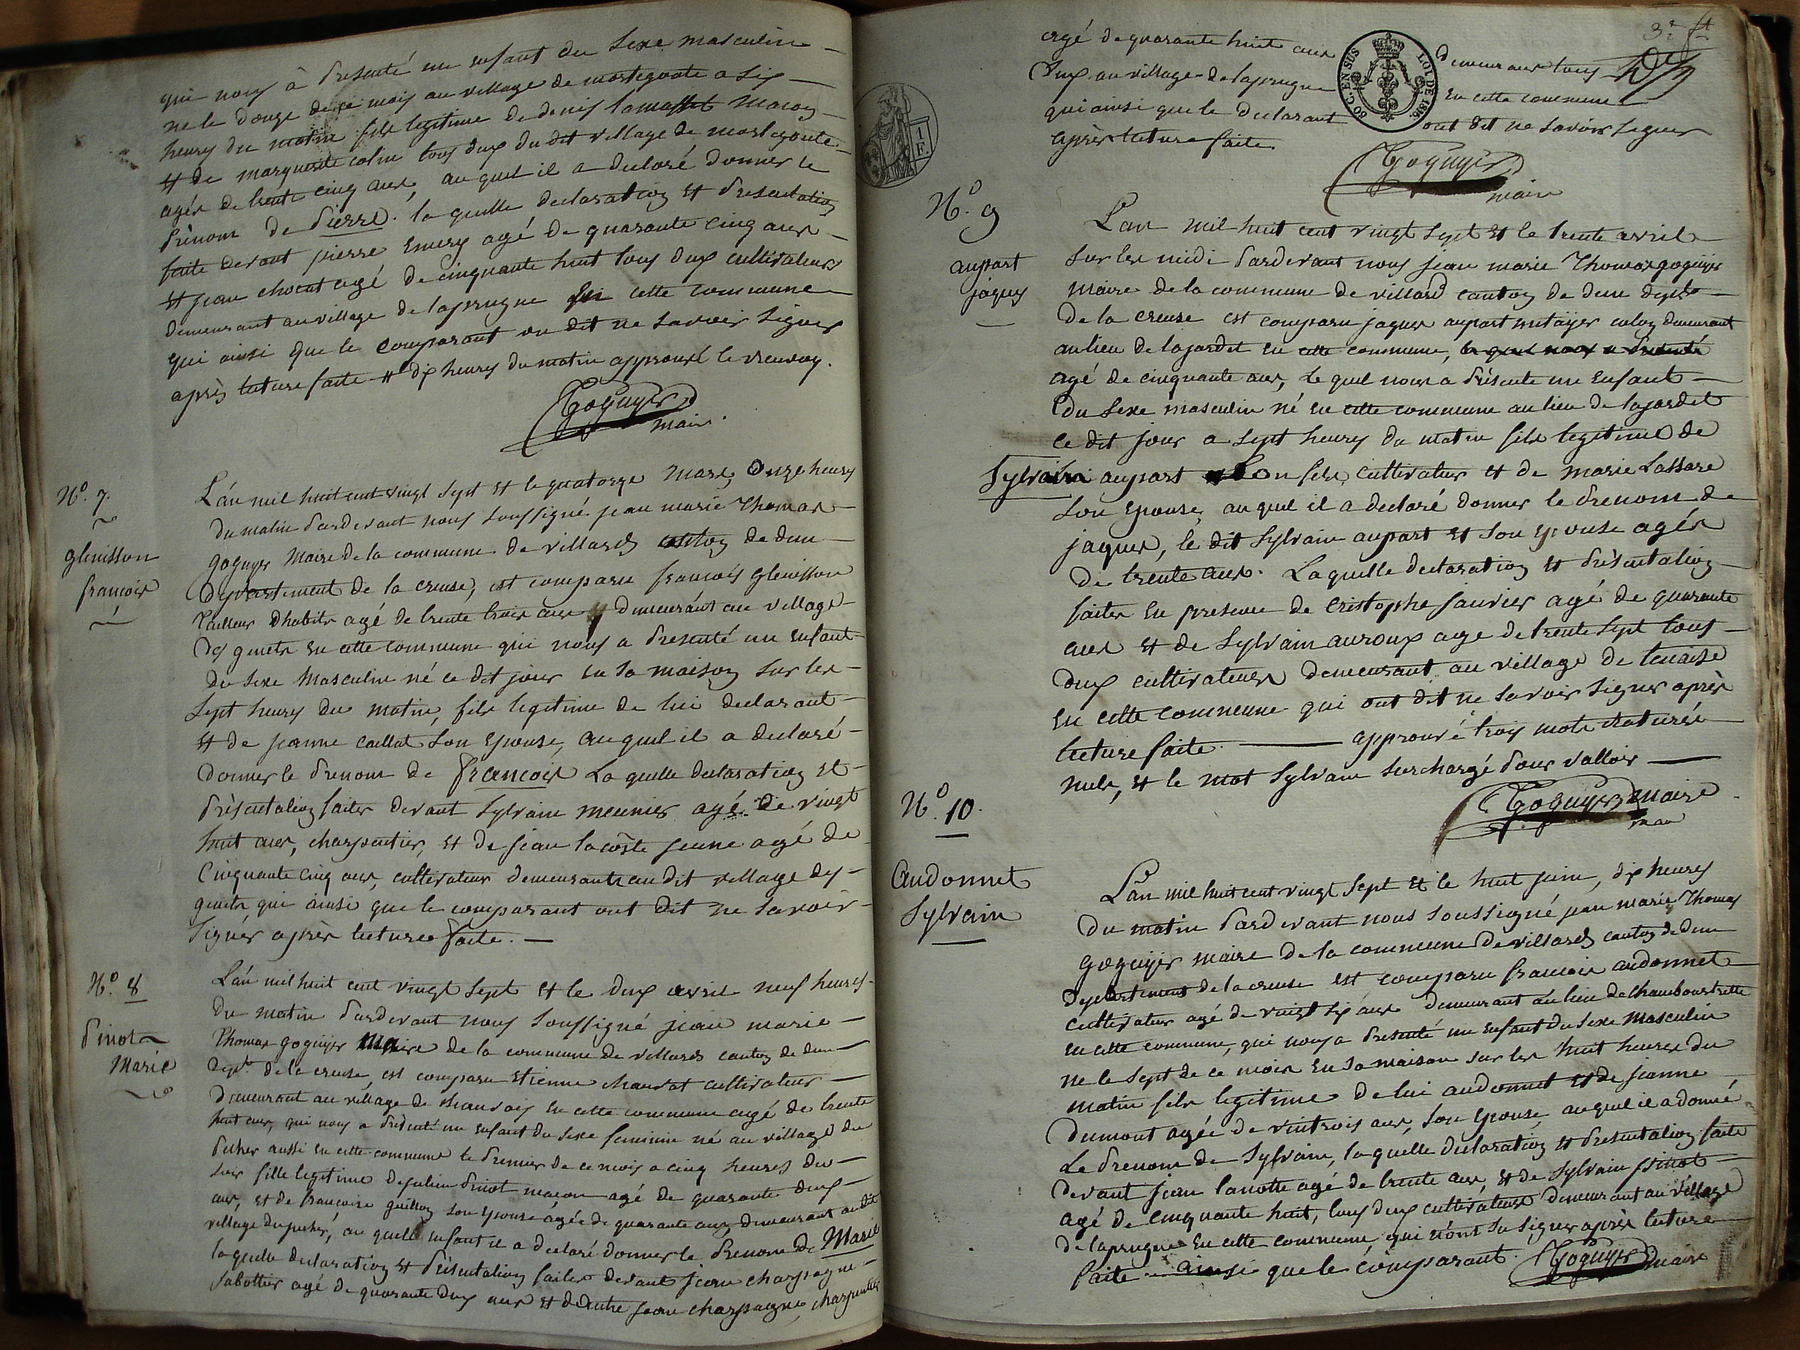 qui nous à présenté un enfant du sexe masculin
né le douze de ce mois au village de mortegoute a six
heures du matin fils legitime de denis lamasset Macon
et de margueritte colin tous deux du dit village de mortegoute
agés de trente cinq ans, au quel il a declaré donner le
prénom de Pierre. la quelle declaration et présentation
faite devant pierre Emery agé de quarante cinq ans
et jean chocat agé de cinquante huit tous deux cultivateurs
demeurant au village de laprugne en cette commune
qui ainsi que le comparant on dit ne savoir signer
après lecture faite et dix heures du matin approuvé le renvoy.
Goguyer
maire.
N.o 7.
glenisson
francois
L'an mil huit cent vingt sept et le quatorze Mars, Onze heures
du matin pardevant nous soussigné jean marie Thomas
goguyer Maire de la commune de villards canton de dun
Département de la creuse, est comparu francois glenisson
Tailleur d'habits agé de trente trois ans demeurant au village
des guiets en cette commune qui nous a présenté un enfant
du sexe Masculin né ce dit jour en sa maison sur les
sept heures du matin, fils legitime de lui declarant
et de jeanne caillat son epouse, au quel il a declaré
donner le prenom de francois La quelle declaration et
présentation faites devant Sylvain meunier agé de vingt
huit ans, charpentier, et de jean lacoste jeune agé de
Cinquante cinq ans, cultivateur demeurants au dit village des
guiets qui ainsi que le comparant ont dit ne savoir
signer après lecture faite.
N.o 8
pinot
Marie
L'an mil huit cent vingt sept et le deux avril neuf heures
du matin pardevant nous soussigné jean marie
Thomas goguyer Maire de la commune de villards canton de dun
Dept de la creuse, est comparu Etienne chauvat cultivateur
demeurant au village de chauvais en cette commune agé de trente
huit ans, qui nous a présenté un enfant du sexe feminin né au village du
puher aussi en cette commune le premier de ce mois a cinq heures du
soir fille legitime de julien pinot macon agé de quarante deux
ans, et de francoise guillon son epouse agée de quarante ans demeurant au dit
village du puher, au quelle enfant il a declaré donner le prenom de Marie
laquelle declaration et présentation faites devant jean charpagne
sabottier agé de quarante deux ans et d'autre jean charpagne, charpentier
3e f
agé de quarante huit ans demeurant tous
Deux au village de laprugne en cette commune
qui ainsi que le declarant ont dit ne savoir signer
après lecture faite
80 C. EN SUS
LOI DE 1816.
1 F.
Goguyer
maire
N.o 9
aupart
jaques
L'an mil huit cent vingt sept et le trente avril
sur les midi pardevant nous jean marie Thomas goguyer
maire de la commune de villard canton de dun dept
de la creuse est comparu jaques aupart métayer colon demeurant
au lieu de lajardet en cette commune, le quel nous a présenté
agé de cinquante ans, le quel nous a présenté un enfant
du sexe masculin né en cette commune au lieu de lajardet
ce dit jour a sept heures du matin fils legitime de
Sylvain aupart son fils, cultivateur et de marie Lassare
son epouse, au quel il a declaré donner le prenom de
jaques, le dit Sylvain aupart et son epouse agés
de trente ans. Laquelle declaration et présentation
faites en presence de cristophe faurier agé de quarante
ans et de Sylvain auroux age de trente sept tous
deux cultivateurs demeurant au village de tenaise
en cette commune qui ont dit ne savoir signer après
lecture faite. approuvé trois mots raturés
nuls, et le mot Sylvain surchargé pour valloir
Goguyer maire
maire
N.o 10.
audonnet
Sylvain
L'an mil huit cent vingt sept et le huit juin, dix heures
du matin pardevant nous soussigné jean marie Thomas
goguyer maire de la commune de villards canton de dun
département de la creuse est comparu francois audonnet
cultivateur agé de vingt six ans demeurant au lieu de chamboustrette
en cette commune, qui nous a présenté un enfant du sexe Masculin
né le sept de ce mois en sa maison sur les huit heures du
matin fils legitime de lui audonnet et de jeanne
dumont agée de vintrois ans, son epouse auquel il a donné
Le prenom de Sylvain, laquelle declaration et présentation faite
devant jean lanotte agé de trente ans, et de Sylvain pinot
agé de cinquante huit, tous deux cultivateurs demeurant au village
de laprugne en cette commune qui n'ont su signer après lecture
faite ainsi que le comparant. Goguyer maire